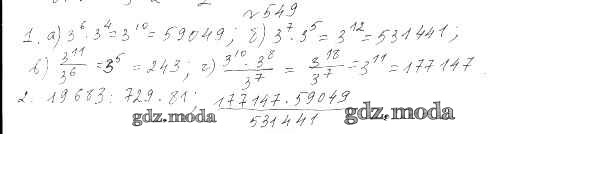 № 549
1. а) 3⁶·3⁴=3¹⁰=59049; б) 3⁷·3⁵=3¹²=531441;
в) 3¹¹/3⁶=3⁵=243; г) 3¹⁰·3⁸/3⁷=3¹⁸/3⁷=3¹¹=177147.
2. 19683:729·81; 177147·59049/531441
gdz.moda gdz.moda